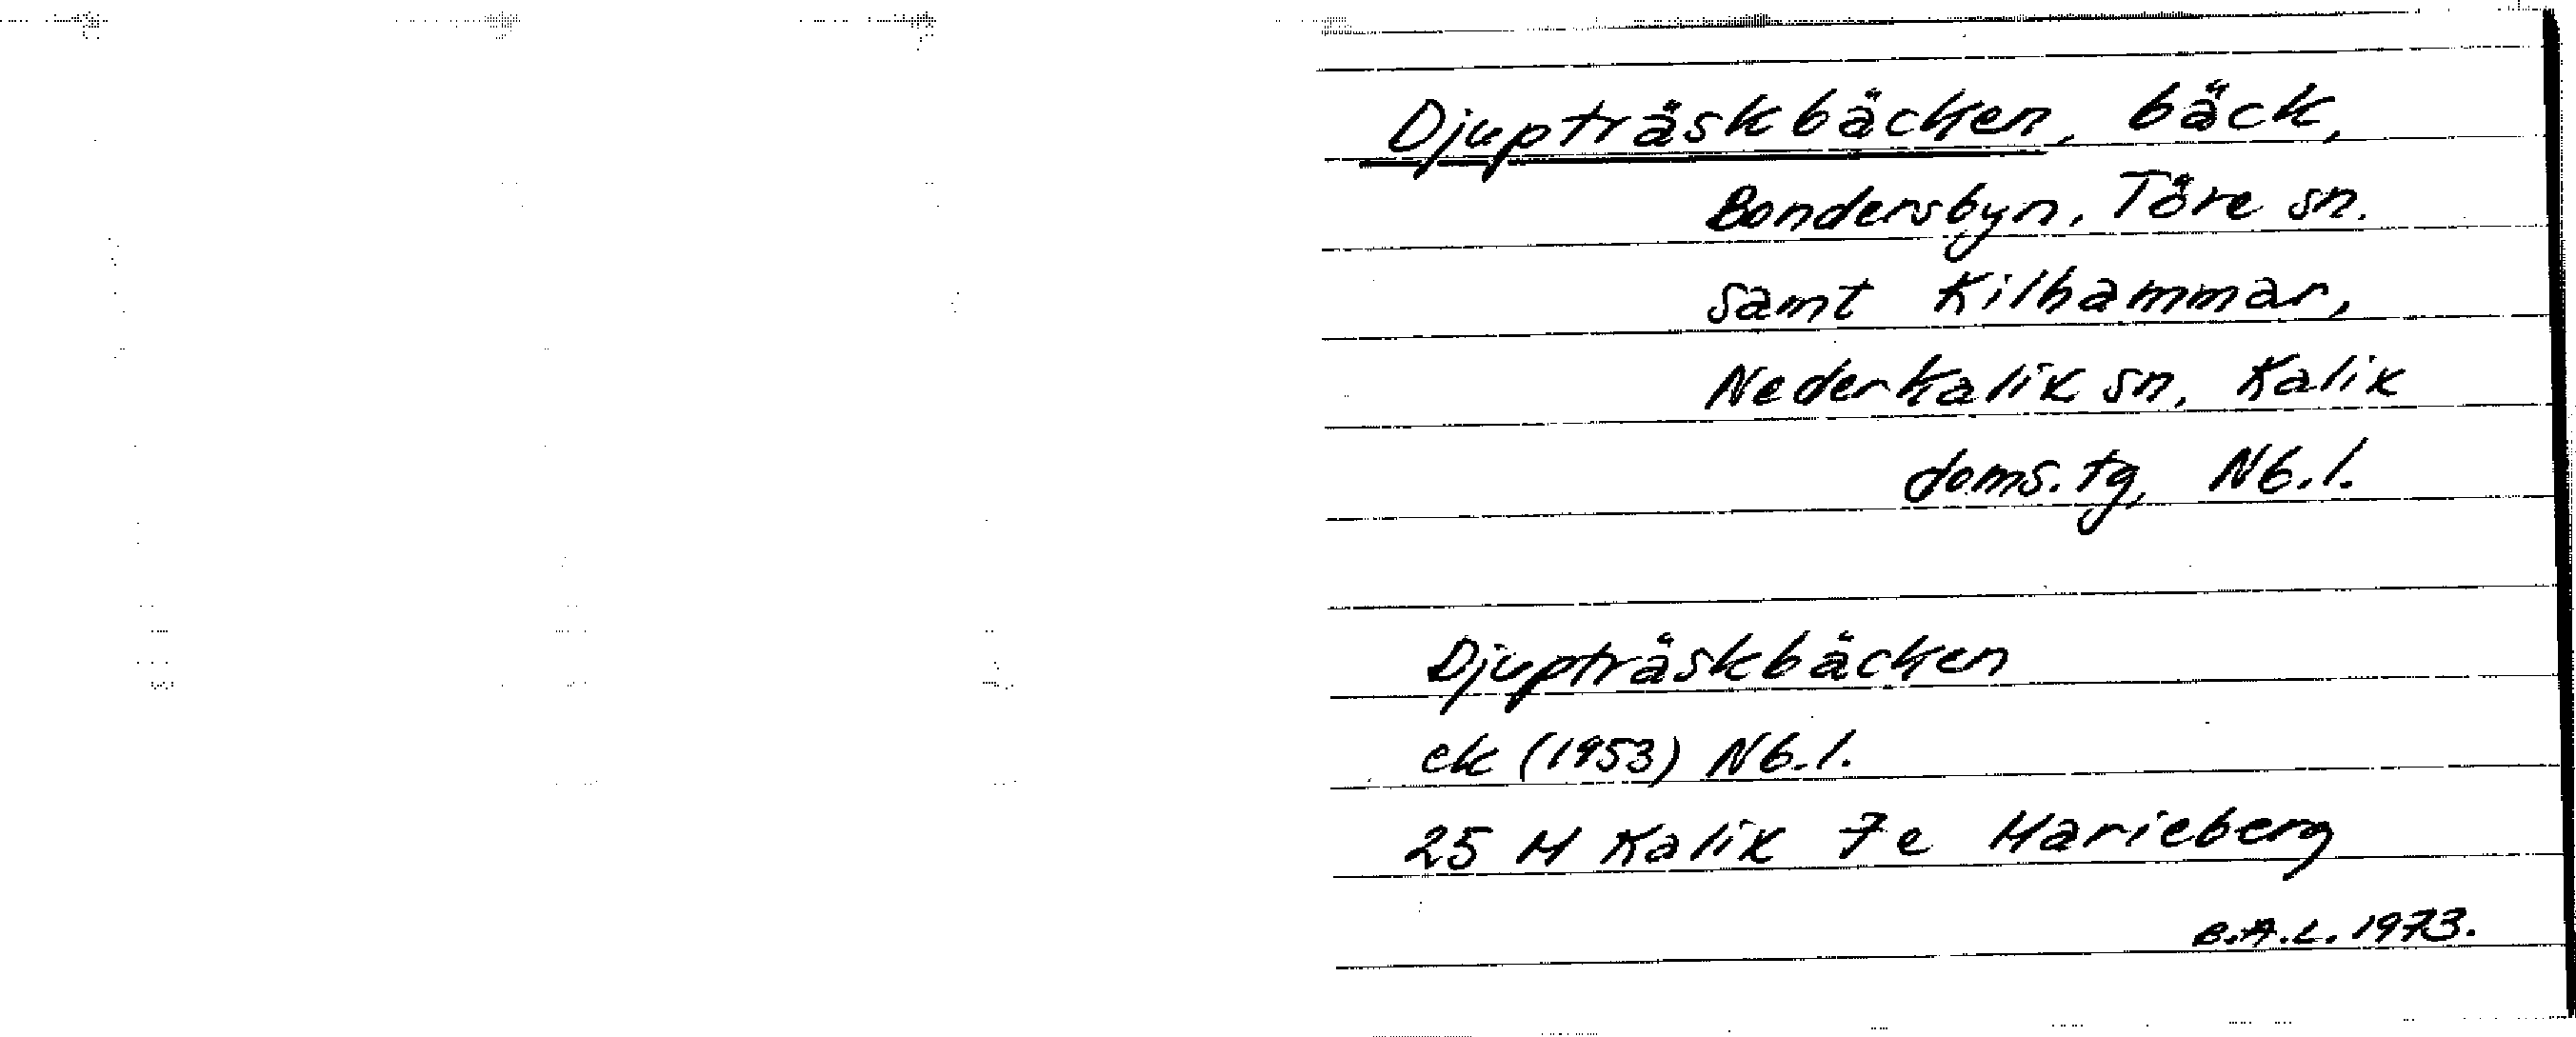 Djupträskbäcken, bäck,
Bondersbyn, Töre sn.
samt Kilhammar,
Nederkalix sn, Kalix
doms.tg, Nb.l.
Djupträskbäcken
ek (1953) Nb.l.
25 M Kalix 7e Marieberg
B.A.L. 1973.